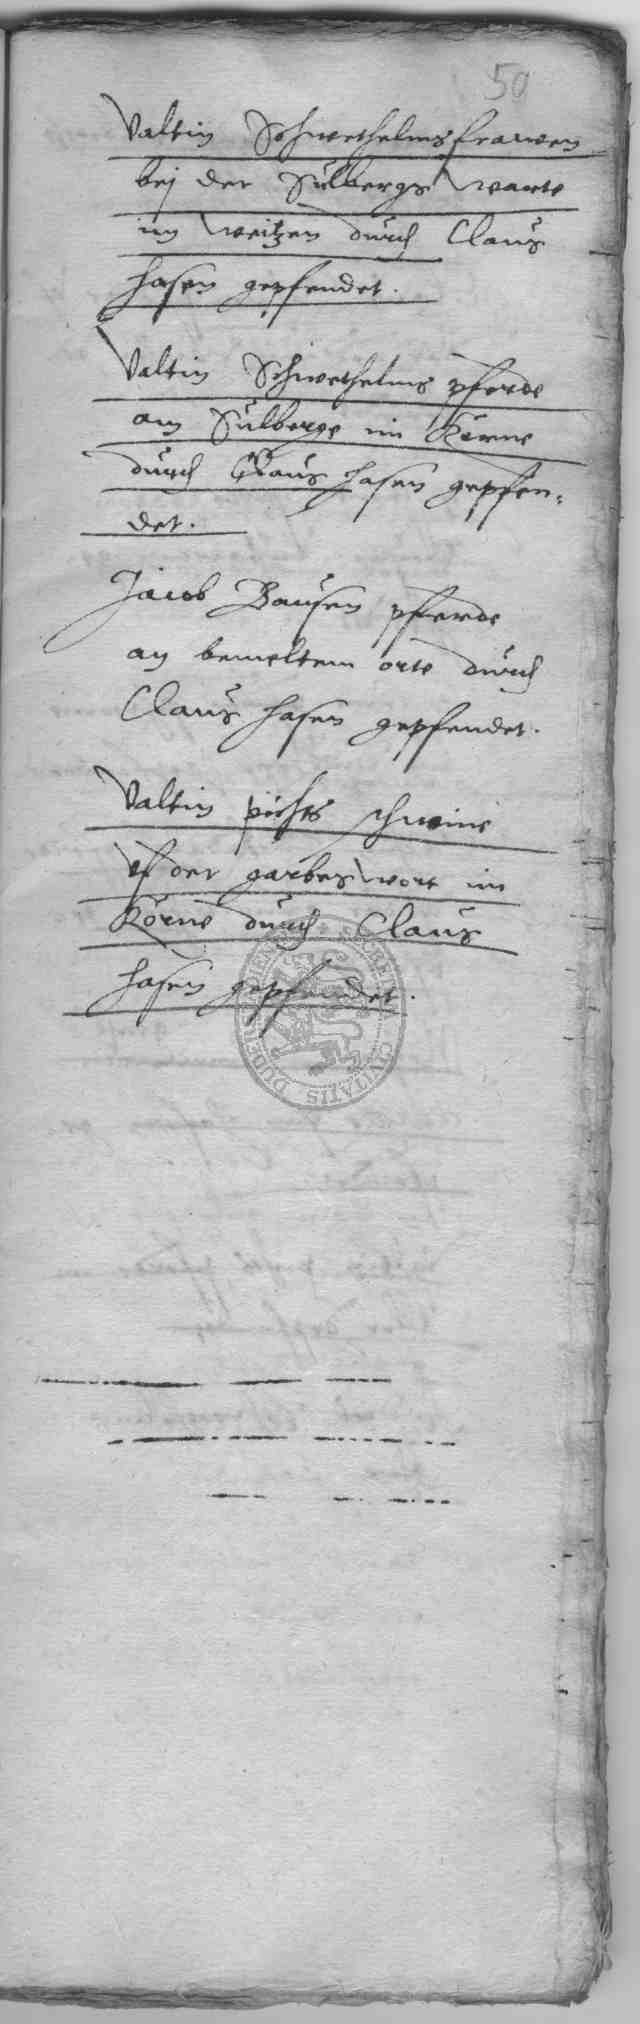 50
Valtin Schwethelms frawen
bej der Sülbergs warte
im weitzen durch Claus
hasen gepfendet.
Valtin Schwethelms pferde
am Sülberge im Körne
durch Claus hasen gepfen=
det.
Jacob Bausen pferde
an bemeltem orte durch
Claus hasen gepfendet.
Valtin schweine
vf der garbes wort im
Körne durch Claus
hasen gepfendet.
CIVITATIS